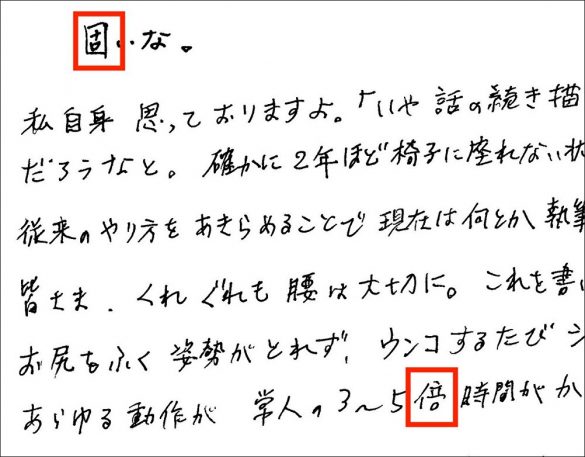 固いな。
私自身 思っておりますよ。「いや 話の続き描
だろうなと。確かに2年ほど椅子に座れない状
従来のやり方をあきらめることで現在は何とか執筆
皆さま、くれぐれも腰は大切に。これを書い
お尻をふく姿勢がとれず、ウンコするたびシ
あらゆる動作が 常人の3〜5倍時間がか